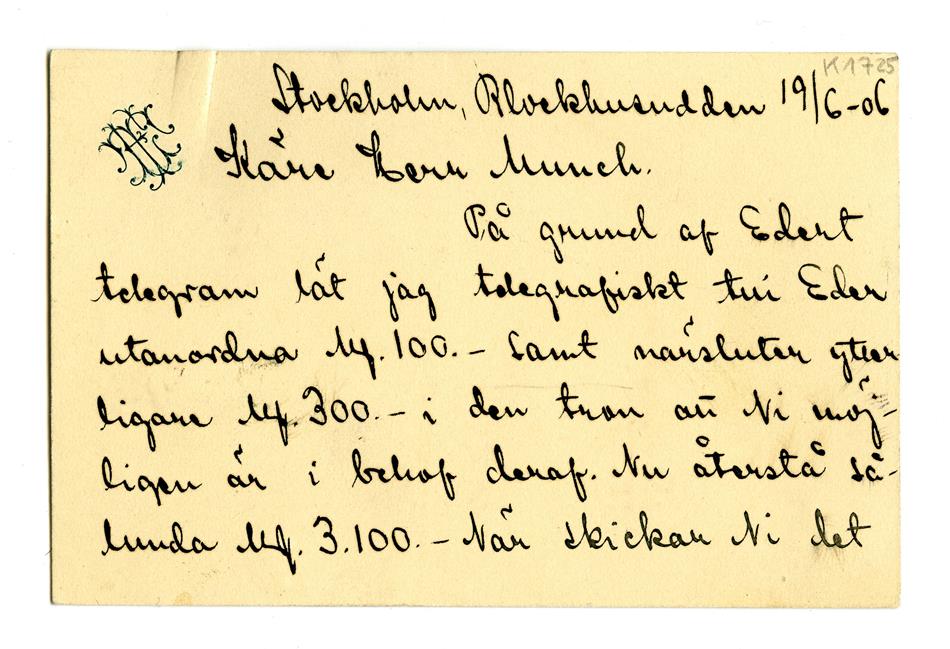 K 1725
Stockholm, Blockhusudden 19/6-06
Käre Herr Munch.
På grund af Edert
telegram lät jag telegrafiskt till Eder
utanordna Mk. 100.- samt närsluter ytter-
ligare Mk. 300.- i den tron att Ni möj-
ligen är i behof deraf. Nu återstå så-
lunda Mk. 3.100.- När skickar Ni det